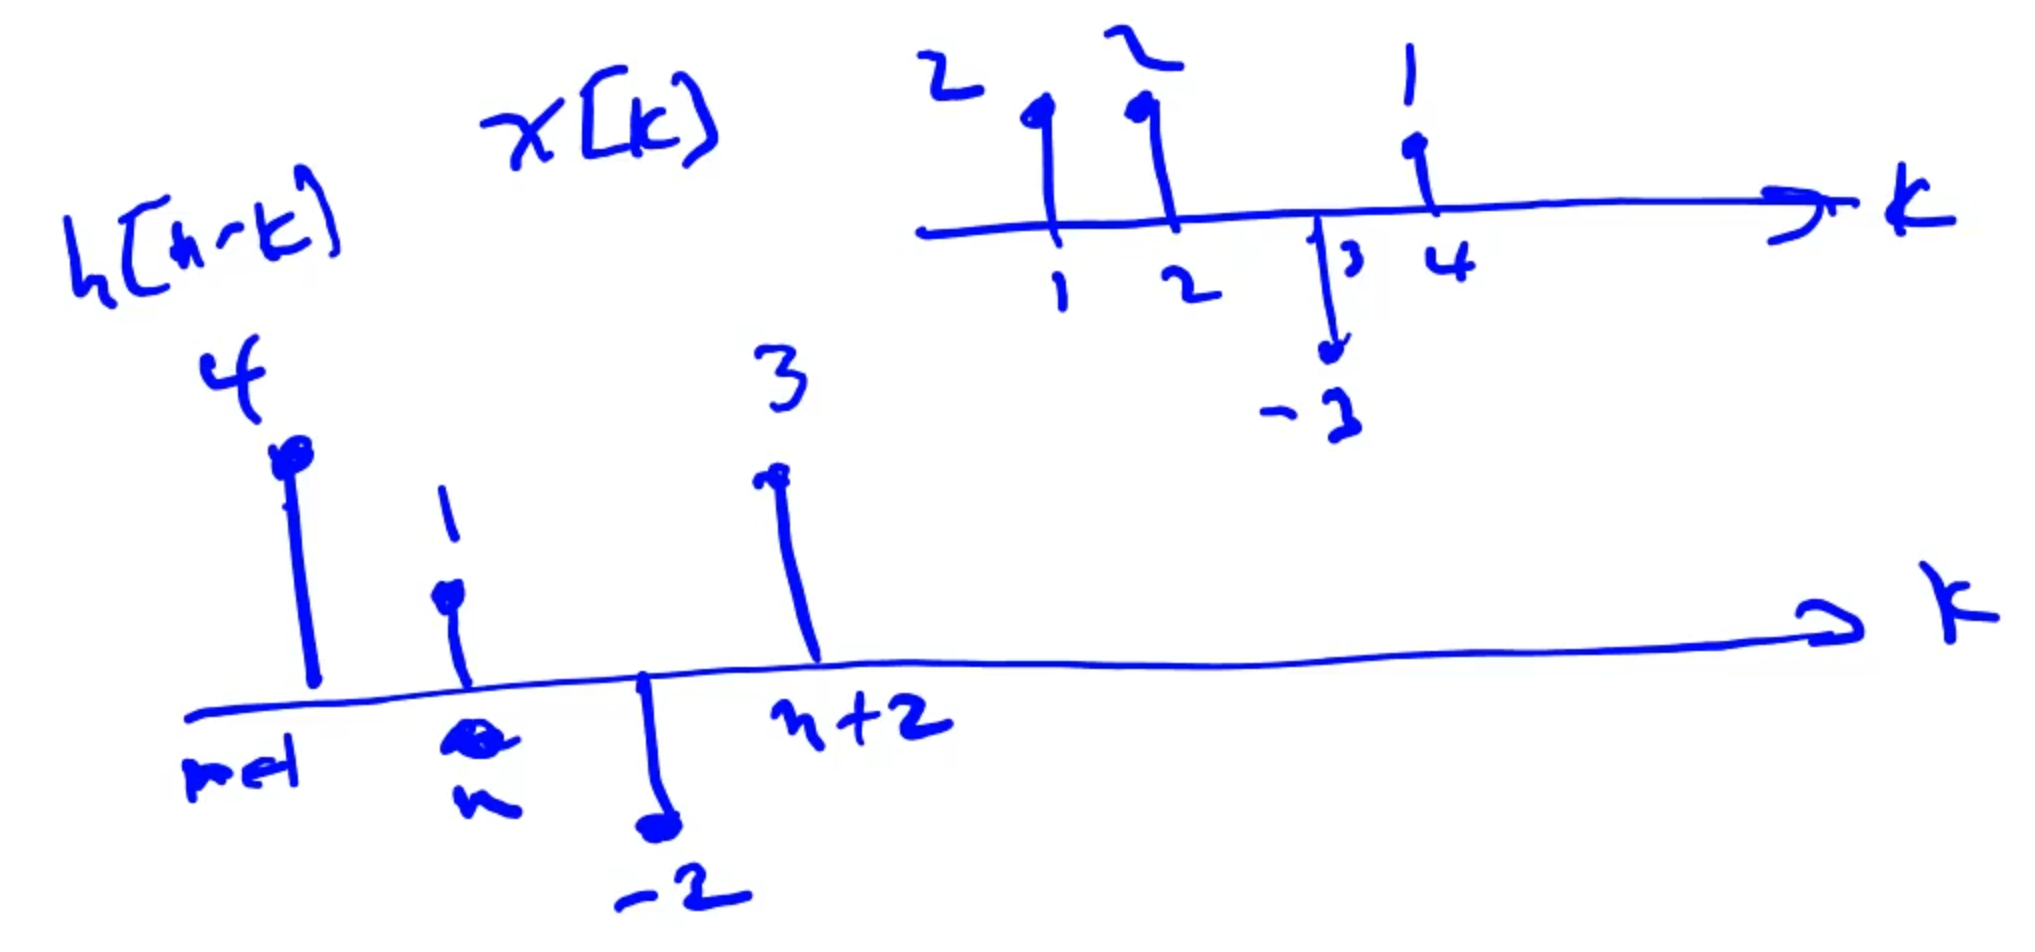 x[k]
2 2 1
k
1 2 3 4
-3
h[n-k]
4 1 3
k
n-1 n n+2
-2